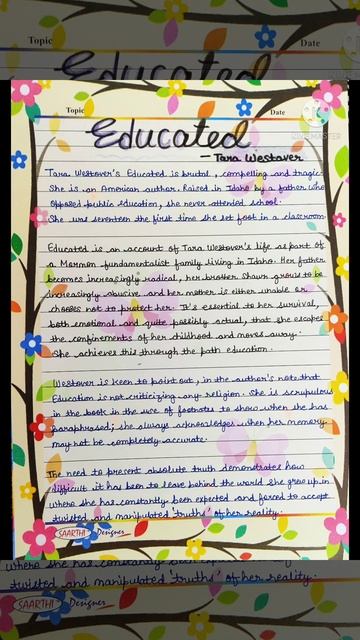 Topic Date
Educated
Topic Date
Educated
— Tara Westover
Tara Westover's Educated is brutal, compelling and tragic.
She is an American author. Raised in Idaho by a father who
opposed public education, she never attended school.
She was seventeen the first time she set foot in a classroom.
Educated is an account of Tara Westover's life as part of
a Mormon fundamentalist family living in Idaho. Her father
becomes increasingly radical, her brother Shawn grows to be
increasingly abusive and her mother is either unable or
chooses not to protect her. It's essential to her survival,
both emotional and quite possibly actual, that she escapes
the confinements of her childhood and moves away.
She achieves this through the path education.
Westover is keen to point out, in the author's note that
Education is not criticizing any religion. She is scrupulous
in the book in the use of footnotes to show when she has
paraphrased; she always acknowledges when her memory
may not be completely accurate.
The need to present absolute truth demonstrates how
difficult it has been to leave behind the world she grew up in
where she has constantly been expected and forced to accept
twisted and manipulated 'truths' of her reality.
SAARTHI Designer
where she has constantly been
twisted and manipulated 'truths' of her reality.
SAARTHI Designer